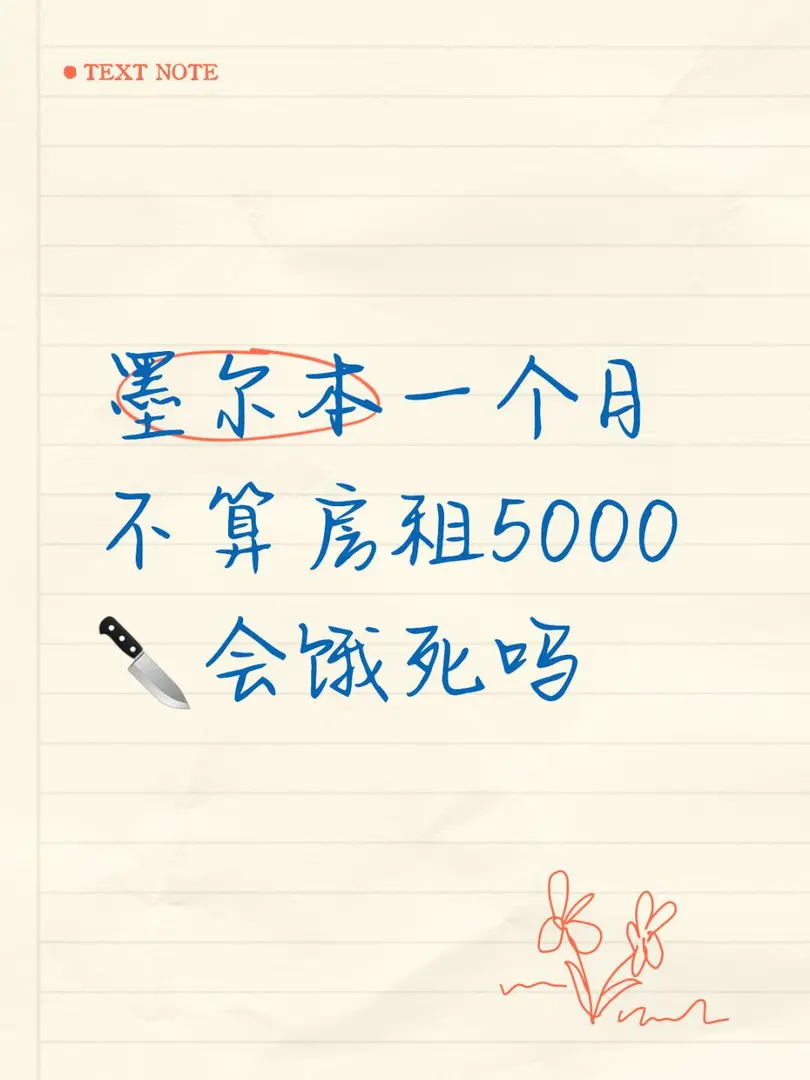 TEXT NOTE
墨尔本一个月
不算房租5000
会饿死吗